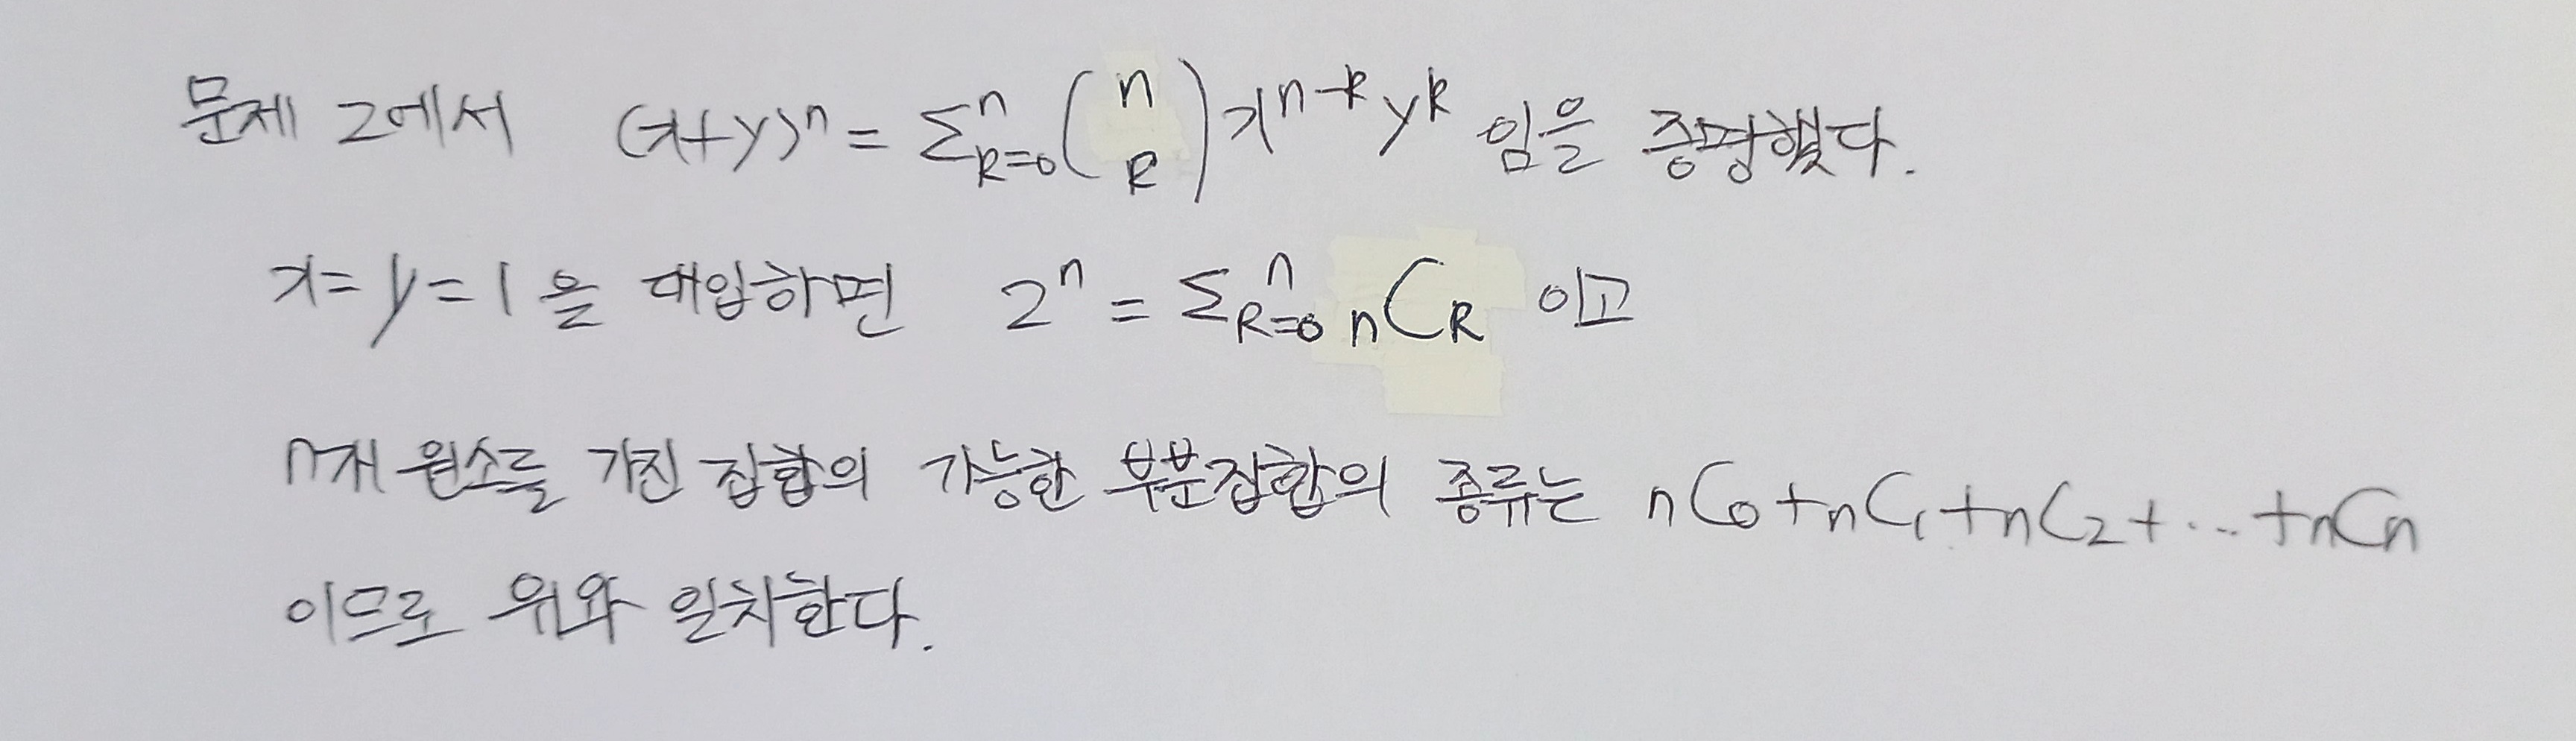 문제 2에서 (x+y)ⁿ = Σⁿ_{k=0} (n k) x^{n-k} y^k 임을 증명했다.
x=y=1을 대입하면 2ⁿ = Σⁿ_{k=0} nCk 이고
n개 원소를 가진 집합의 가능한 부분집합의 종류는 nC₀+nC₁+nC₂+...+nCn
이므로 위와 일치한다.